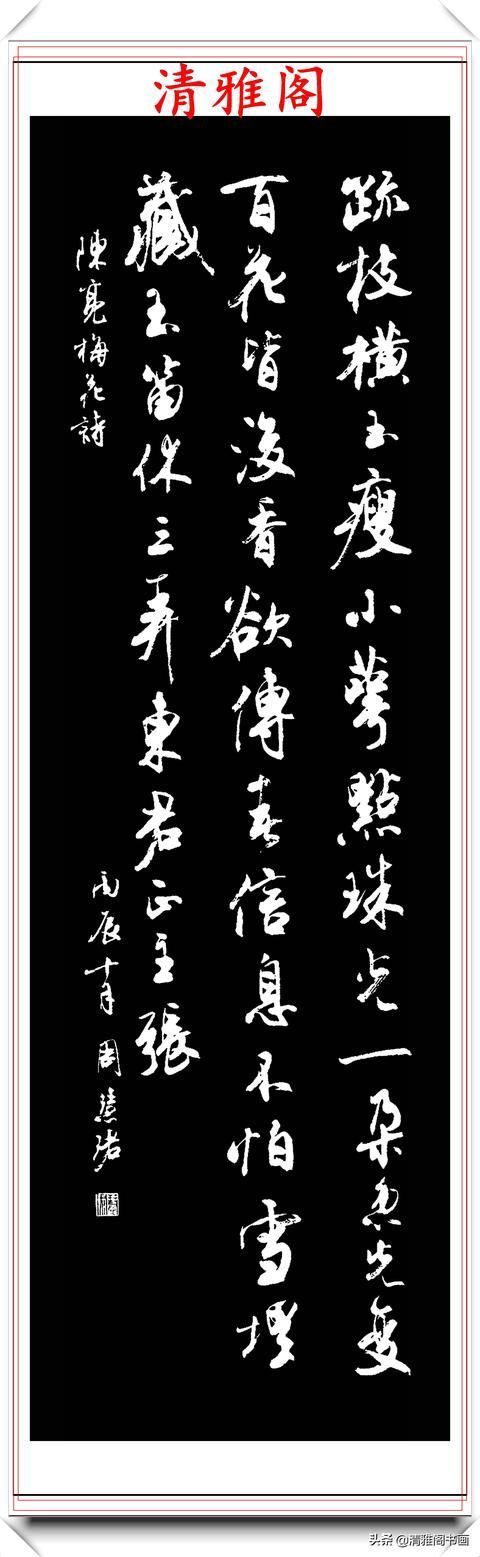 清雅阁
疏枝橫玉瘦小萼點珠光一朵忽先变
百花皆後香欲傳春信息不怕雪埋
藏玉笛休三弄東君正主張
陳亮梅花詩
丙辰十月周慧珺
头条@清雅阁书画